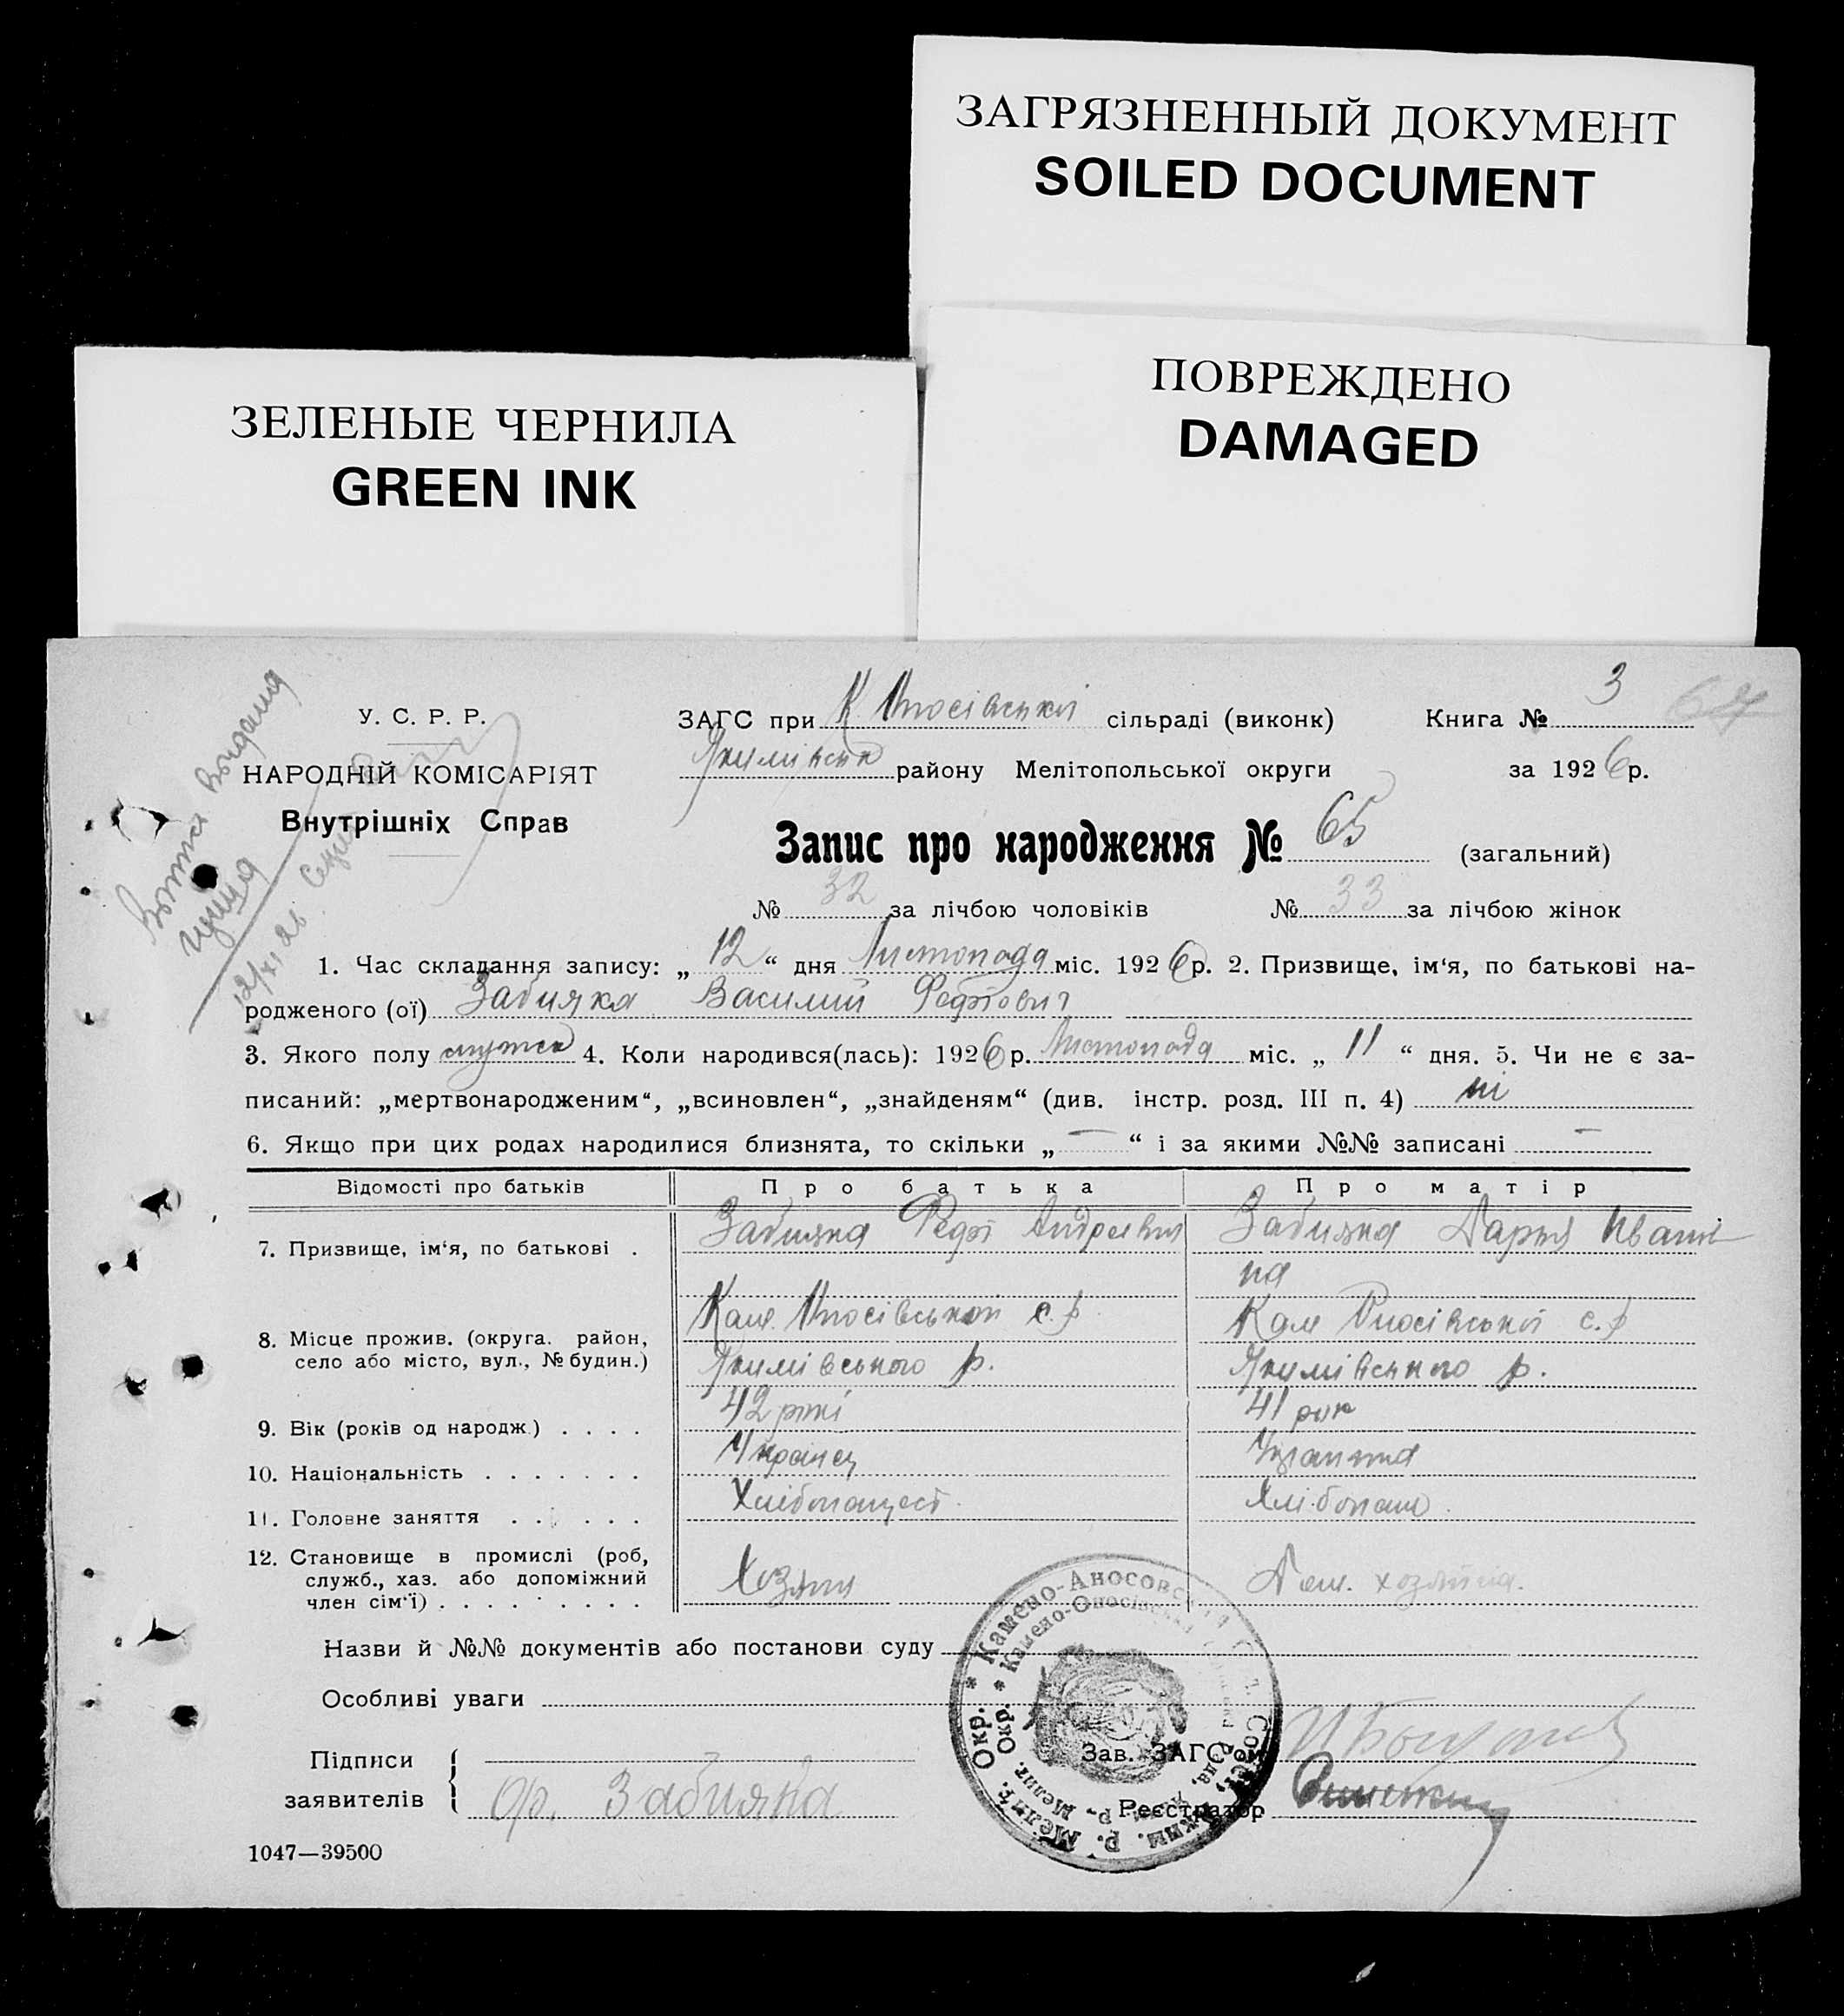 ЗАГРЯЗНЕННЫЙ ДОКУМЕНТ
SOILED DOCUMENT
ПОВРЕЖДЕНО
DAMAGED
ЗЕЛЕНЫЕ ЧЕРНИЛА
GREEN INK
3
У. С. Р. Р.
НАРОДНІЙ КОМІСАРІЯТ
Внутрішніх Справ
ЗАГС при К сільраді (виконк) Книга №
району Мелітопольської округи за 1926р.
Запис про народження № 65 (загальний)
№ 32 за лічбою чоловіків № 33 за лічбою жінок
1. Час складання запису: „12“ дня Листопада міс. 1926р. 2. Призвище, ім‘я, по батькові на-
родженого (ої) Забияка Василий
3. Якого полу 4. Коли народився(лась): 1926р. Листопада міс. „11“ дня. 5. Чи не є за-
писаний: „мертвонародженим“, „всиновлен“, „знайденям“ (див. інстр. розд. III п. 4) ні
6. Якщо при цих родах народилися близнята, то скільки „—“ і за якими №№ записані —
Відомості про батьків Про батька Про матір
7. Призвище, ім‘я, по батькові . Забияка Забияка Дарья Івані
на
8. Місце прожив. (округа. район, село або місто, вул., № будин.) Кам с.р. Кам с.р
Якимівського р. Якимівського р.
9. Вік (років од народж.) . . . . 42 рокі 41 рок
10. Національність . . . . . . . Українец
11. Головне заняття . . . . . . Хлібопаш
12. Становище в промислі (роб,
служб., хаз. або допоміжний
член сім‘ї) . . . . . . . . . Хозяин Дом. хозяйка.
Назви й №№ документів або постанови суду
Особливі уваги
Підписи
заявителів гр. Забияка
Зав. ЗАГС‘ом
Реєстратор
1047—39500